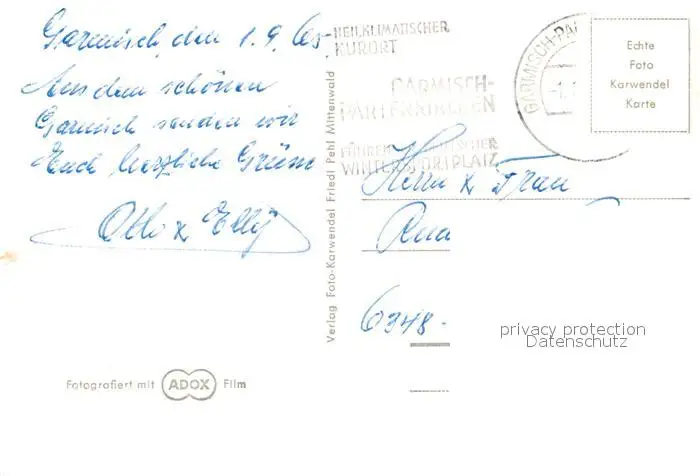 Garmisch, den 1.9.65
Aus dem schönen
Garmisch senden wir
Euch herzliche Grüsse
Otto & Elly
Fotografiert mit ADOX Film
Verlag Foto-Karwendel Friedl Pehl Mittenwald
HEILKLIMATISCHER
KURORT
GARMISCH-
PARTENKIRCHEN
FÜHRENDER DEUTSCHER
WINTERSPORTPLATZ
GARMISCH-PA
Echte
Foto
Karwendel
Karte
Herrn & Frau
6348.
privacy protection
Datenschutz